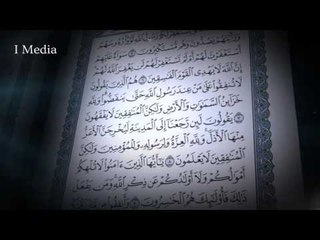 I Media
وَرَأَيْتَهُمْ يَصُدُّونَ وَهُم مُّسْتَكْبِرُونَ ۝٥ سَوَآءٌ عَلَيْهِمْ
أَسْتَغْفَرْتَ لَهُمْ أَمْ لَمْ تَسْتَغْفِرْ لَهُمْ لَن يَغْفِرَ ٱللَّهُ لَهُمْ
إِنَّ ٱللَّهَ لَا يَهْدِى ٱلْقَوْمَ ٱلْفَٰسِقِينَ ۝٦ هُمُ ٱلَّذِينَ يَقُولُونَ
لَا تُنفِقُوا۟ عَلَىٰ مَنْ عِندَ رَسُولِ ٱللَّهِ حَتَّىٰ يَنفَضُّوا۟ وَلِلَّهِ
خَزَآئِنُ ٱلسَّمَٰوَٰتِ وَٱلْأَرْضِ وَلَٰكِنَّ ٱلْمُنَٰفِقِينَ لَا يَفْقَهُونَ
۝٧ يَقُولُونَ لَئِن رَّجَعْنَآ إِلَى ٱلْمَدِينَةِ لَيُخْرِجَنَّ ٱلْأَعَزُّ
مِنْهَا ٱلْأَذَلَّ وَلِلَّهِ ٱلْعِزَّةُ وَلِرَسُولِهِۦ وَلِلْمُؤْمِنِينَ وَلَٰكِنَّ
ٱلْمُنَٰفِقِينَ لَا يَعْلَمُونَ ۝٨ يَٰٓأَيُّهَا ٱلَّذِينَ ءَامَنُوا۟ لَا تُلْهِكُمْ
أَمْوَٰلُكُمْ وَلَآ أَوْلَٰدُكُمْ عَن ذِكْرِ ٱللَّهِ وَمَن يَفْعَلْ
ذَٰلِكَ فَأُو۟لَٰٓئِكَ هُمُ ٱلْخَٰسِرُونَ ۝٩ وَأَنفِقُوا۟ مِن